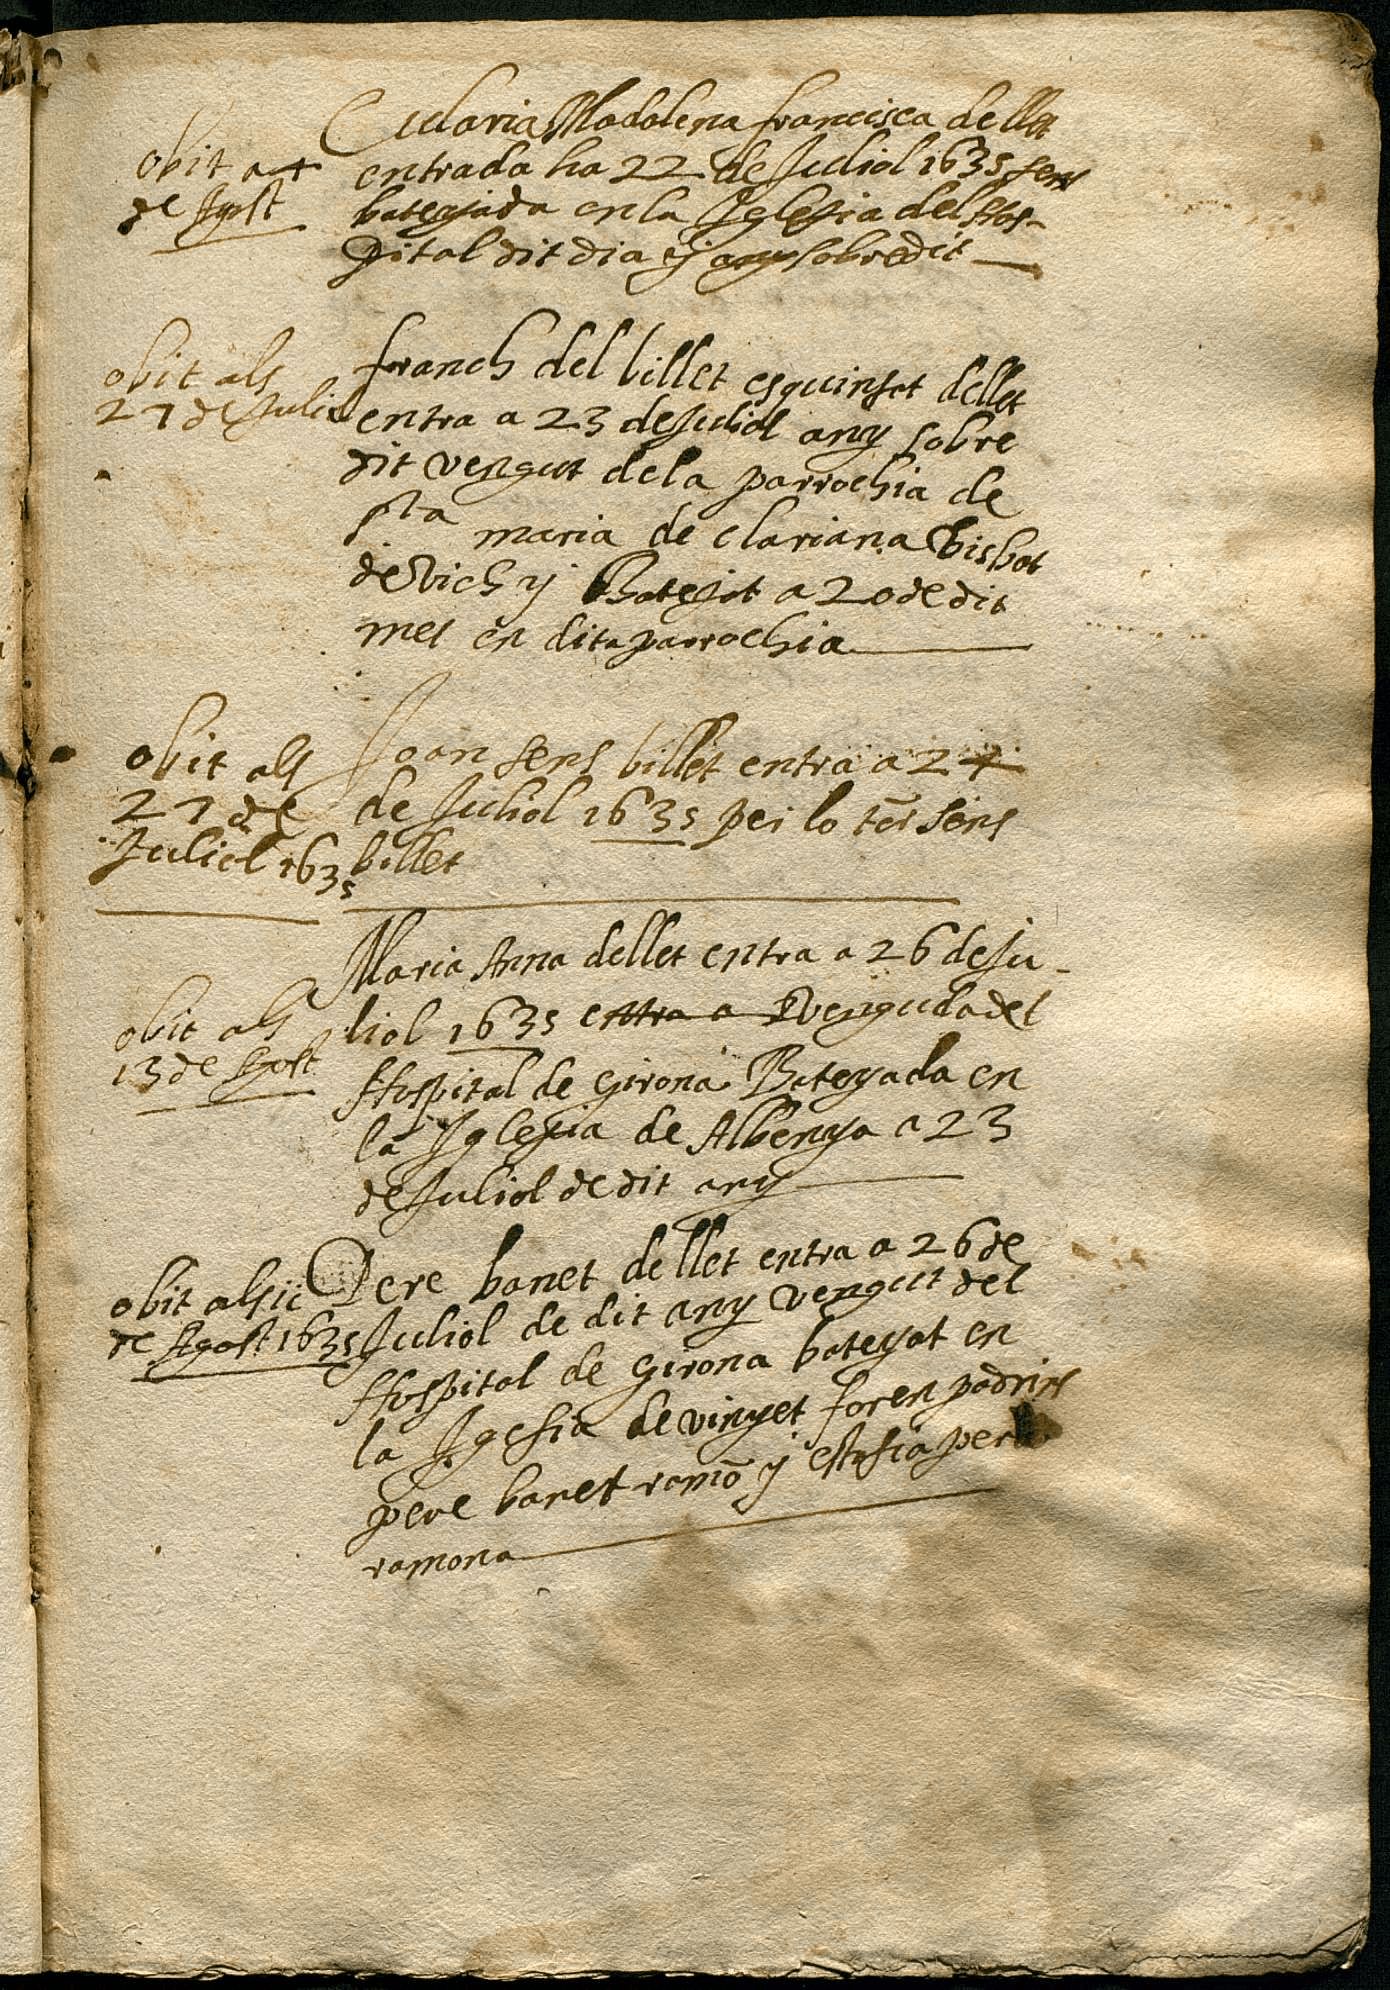 Eularia Madalena francisca de llet
obit a 4
de Agost
entrada ha 22 de Juliol 1635 fons
bategada en la Iglesia del Hos-
pital dit dia y any sobredit
obit als
27 de Juliol
franch del billet esquinsat de llet
entra a 23 de Juliol any sobre
dit vengut de la parrochia de
sta maria de clariana Bisbat
de Vich y Bategat a 20 de dit
mes en dita parrochia
obit als
27 de
Juliol 1635
Joan sens billet entra a 24
de Juliol 1635 per lo torn sens
billet
obit als
13 de Agost
Maria Anna de llet entra a 26 de Ju-
liol 1635 entra a venguda del
Hospital de Girona Bategada en
la Iglesia de Albenya a 23
de Juliol de dit any
obit als ii
de Agost 1635
Pere banet de llet entra a 26 de
Juliol de dit any vengut del
Hospital de Girona bategat en
la Igesia de vinyet foren padrins
pere banet ramō y
ramona